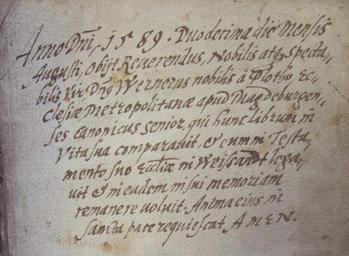 Anno Dñi, 1589. Duodecima die Mensis
Augusti, Obijt Reverendus, Nobilis atq, specta,
bilis Vir Dñs Wernerus nobilis à Plotho Ec,
clesiæ Metropolitanæ apud Magdeburgen,
ses Canonicus Senior, qui hunc librum in
Vita sua comparavit, et eum in Testa,
mento suo Eccliæ in Weisandt lega,
vit et in eadem in sui memoriam
remanere voluit. Anima eius in
Sancta pace requiescat, AMEN.